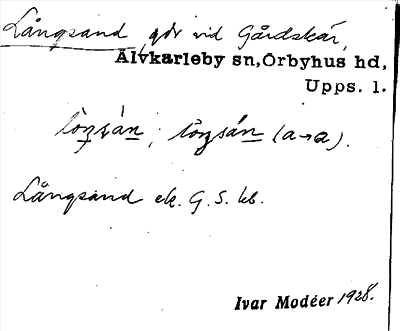 Långsand, gör vid Gårdskär,
Älvkarleby sn, Örbyhus hd,
Upps. l.
Långsand ek. G. S. kb.
Ivar Modéer 1928.